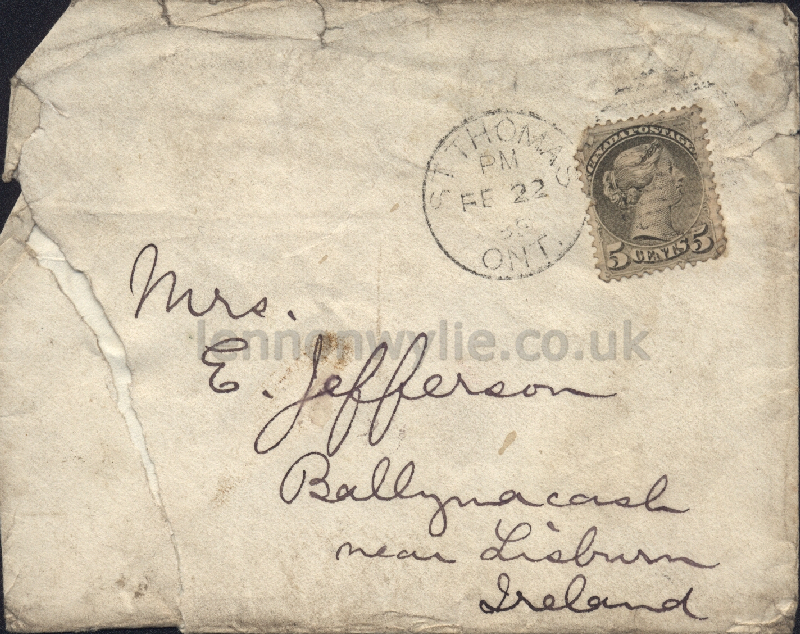 ST. THOMAS
PM
FE 22
ONT.
CANADA POSTAGE
5 CENTS 5
Mrs.
lennonwylie.co.uk
E. Jefferson
Ballynacash
near Lisburn
Ireland